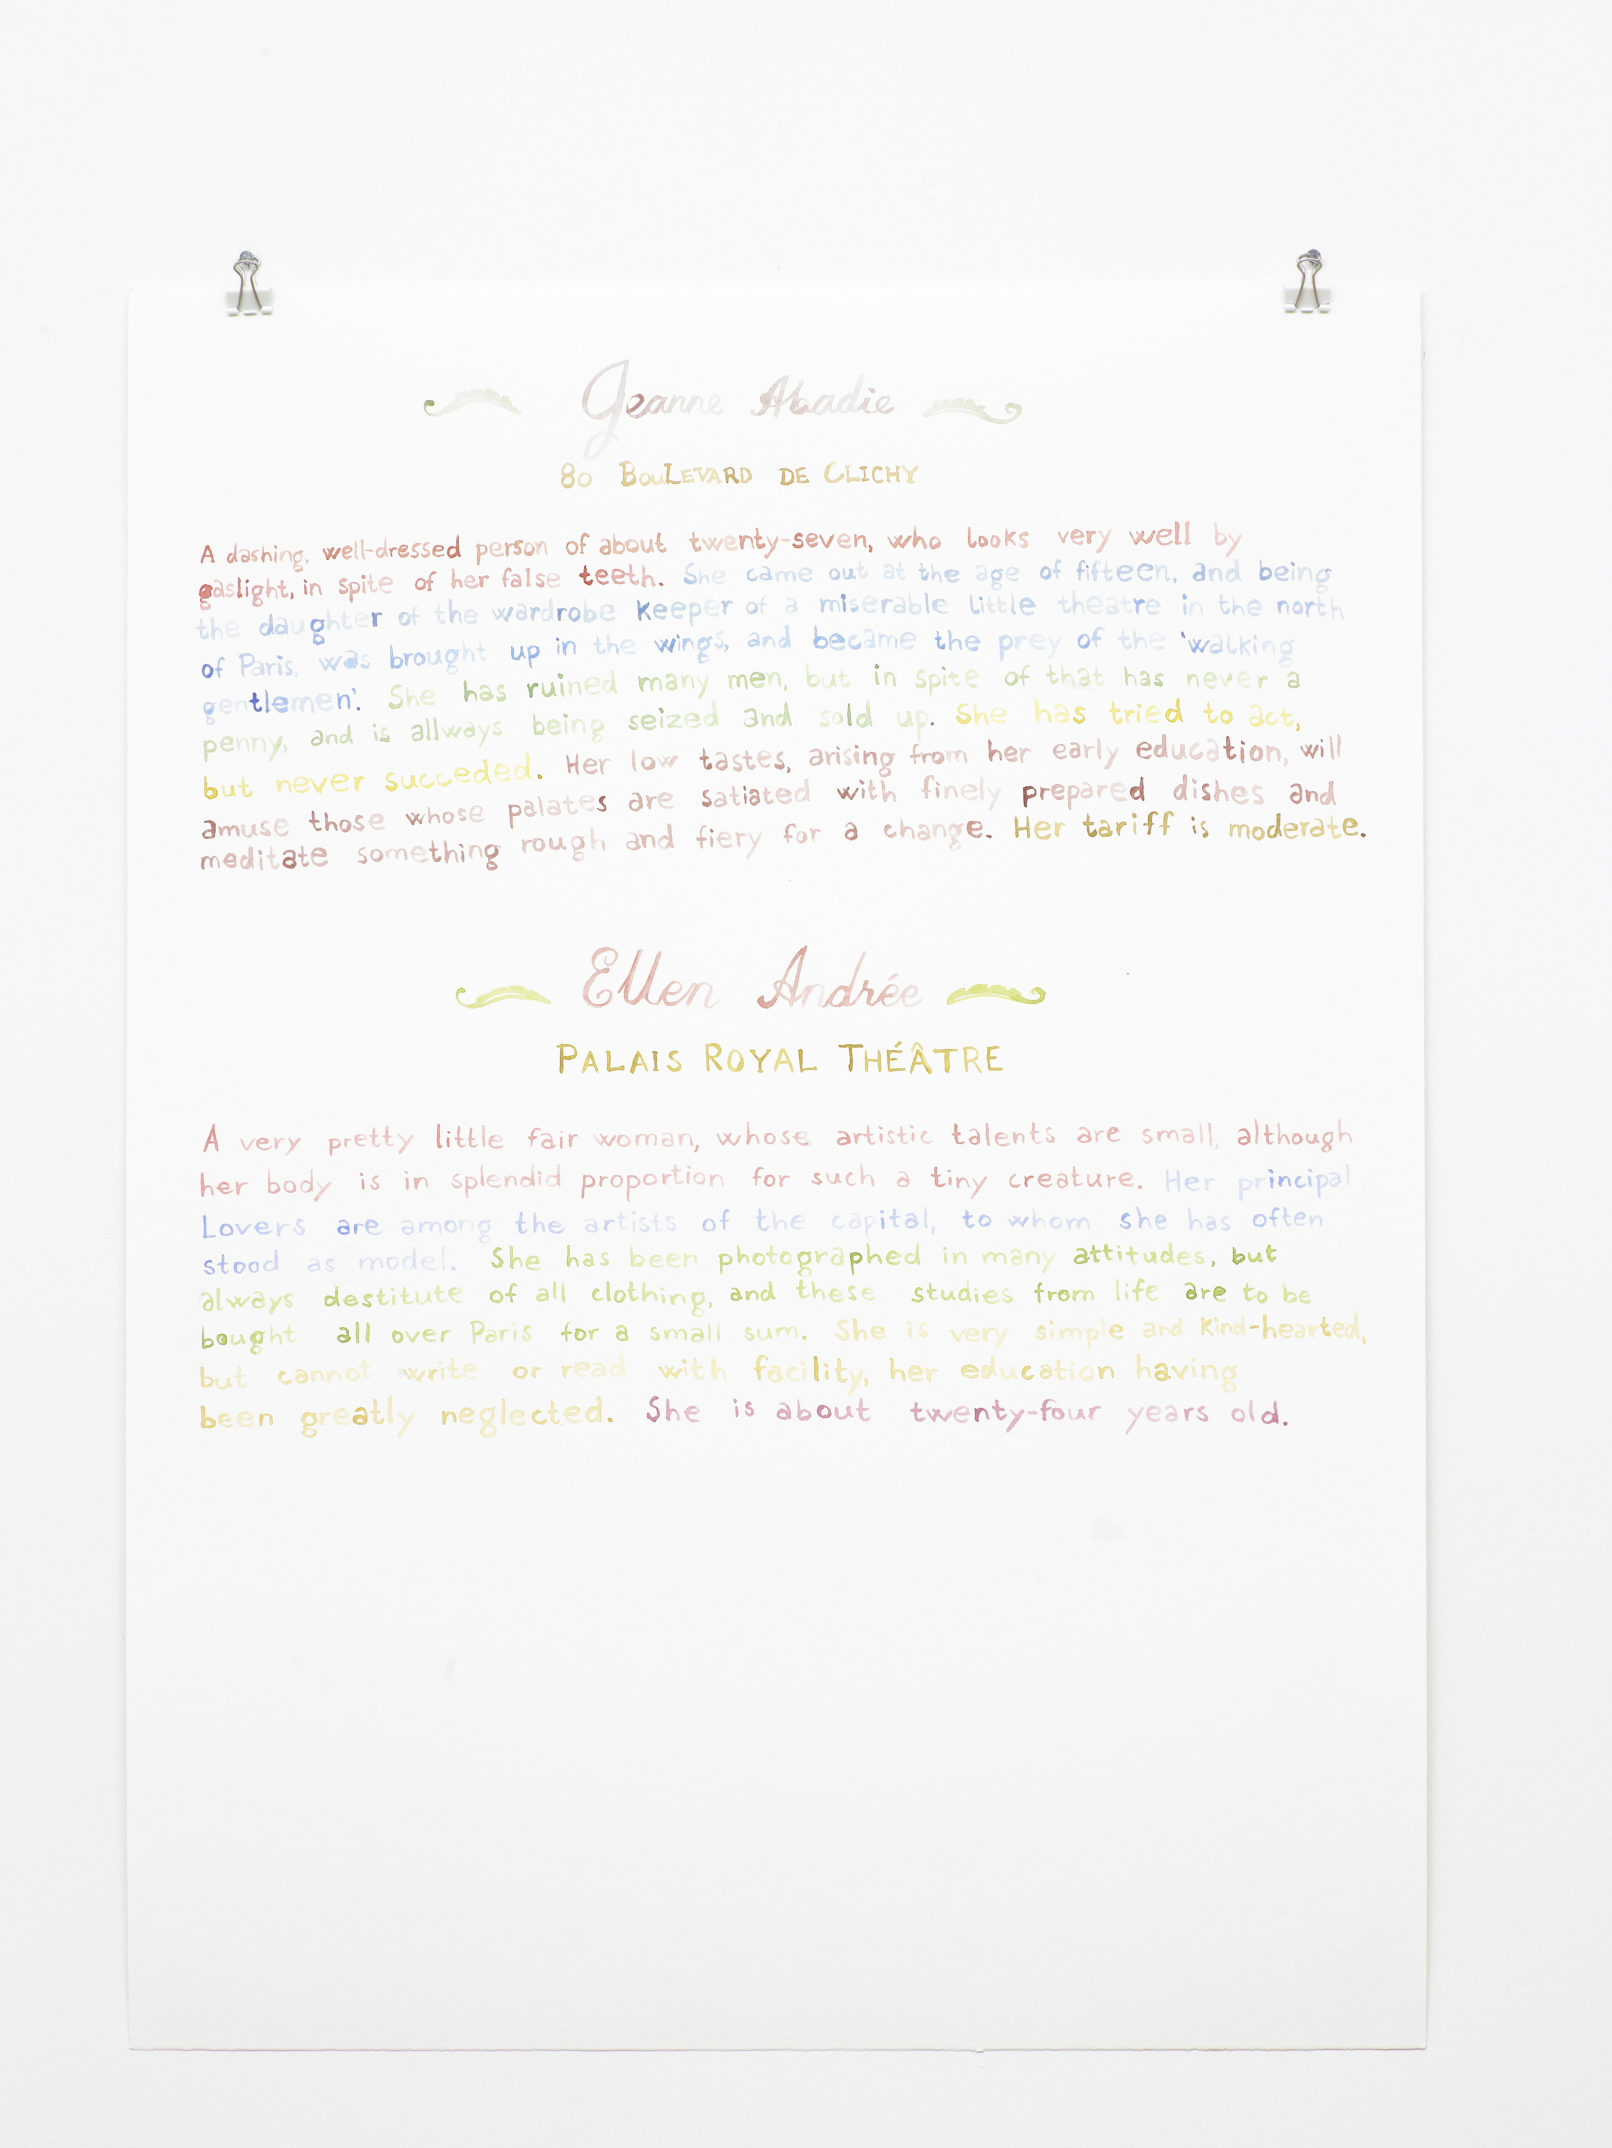 Jeanne Abadie
80 BOULEVARD DE CLICHY
A dashing, well-dressed person of about twenty-seven, who looks very well by
gaslight, in spite of her false teeth. She came out at the age of fifteen, and being
the daughter of the wardrobe keeper of a miserable little theatre in the north
of Paris, was brought up in the wings, and became the prey of the 'walking
gentlemen'. She has ruined many men, but in spite of that has never a
penny, and is allways being seized and sold up. She has tried to act,
but never succeded. Her low tastes, arising from her early education, will
amuse those whose palates are satiated with finely prepared dishes and
meditate something rough and fiery for a change. Her tariff is moderate.
Ellen Andrée
PALAIS ROYAL THÉÂTRE
A very pretty little fair woman, whose artistic talents are small, although
her body is in splendid proportion for such a tiny creature. Her principal
Lovers are among the artists of the capital, to whom she has often
stood as model. She has been photographed in many attitudes, but
always destitute of all clothing, and these studies from life are to be
bought all over Paris for a small sum. She is very simple and kind-hearted,
but cannot write or read with facility, her education having
been greatly neglected. She is about twenty-four years old.